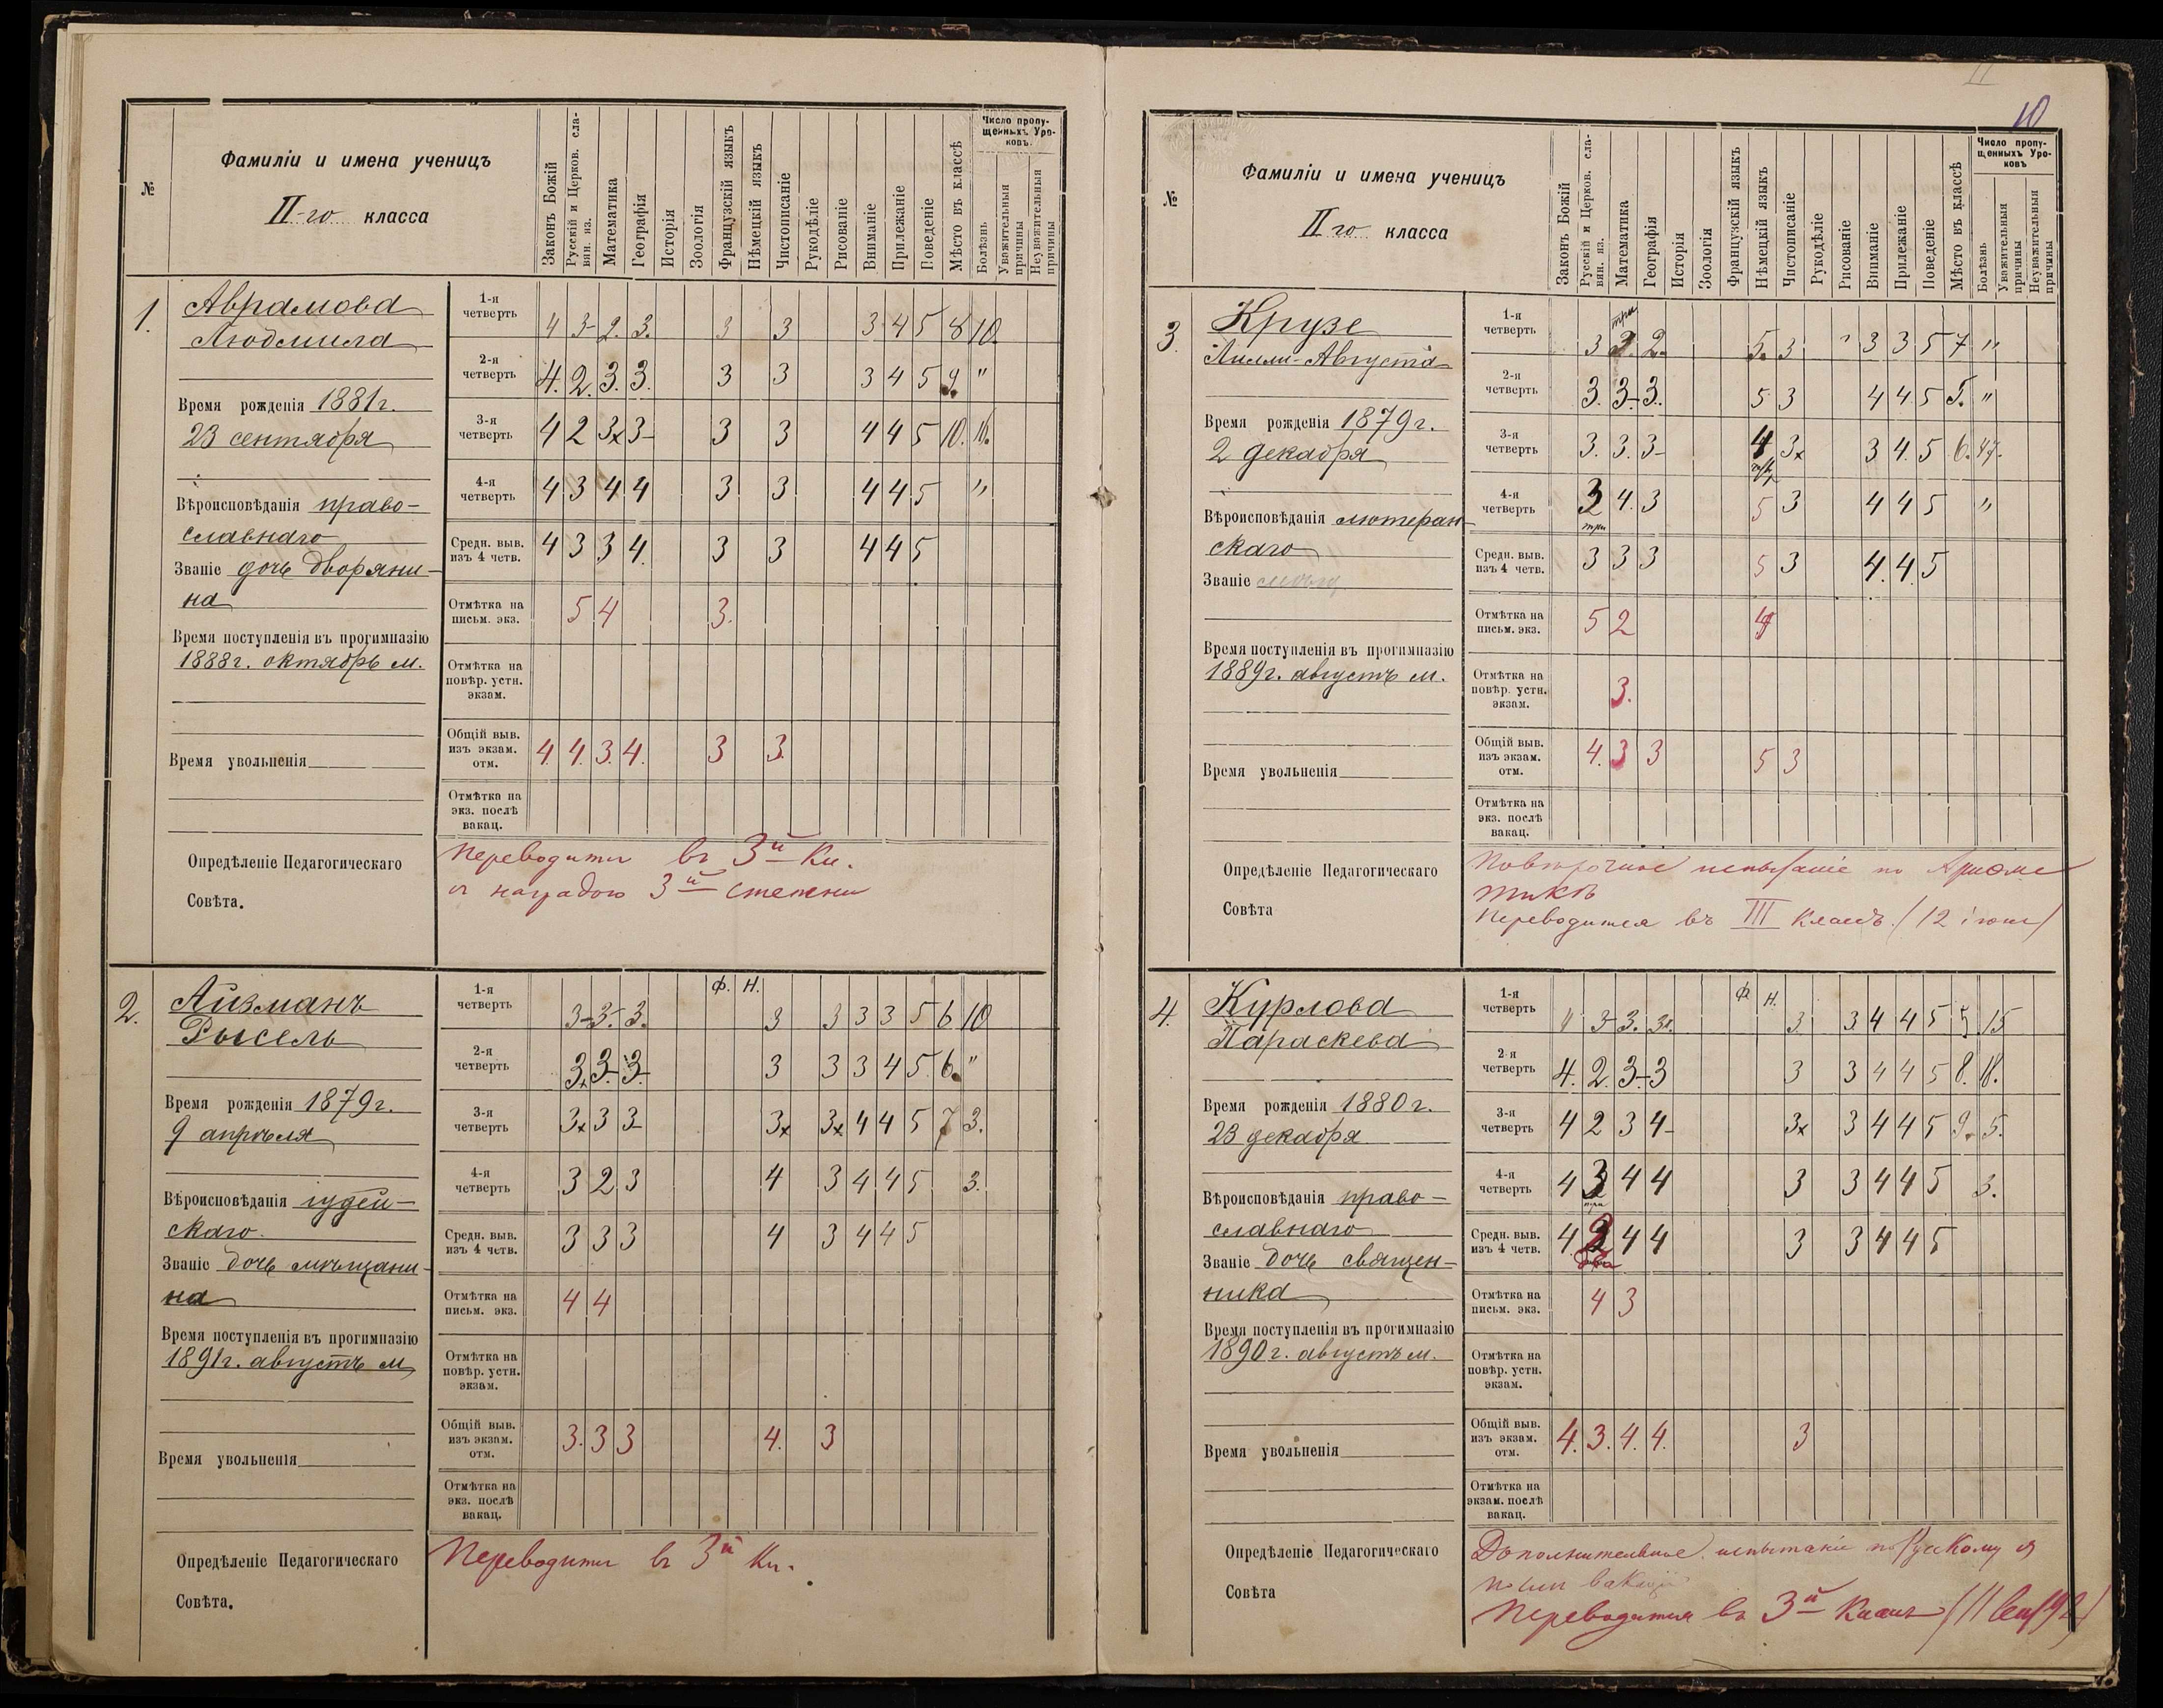 №
Фамиліи и имена ученицъ
II-го класса
Законъ Божій
Русскій и Церков. сла-
вян. яз.
Математика
Географія
Исторія
Зоологія
Французскій языкъ
Нѣмецкій языкъ
Чистописаніе
Рукодѣліе
Рисованіе
Вниманіе
Прилежаніе
Поведеніе
Мѣсто въ классѣ
Число пропу-
щенныхъ Уро-
ковъ.
Болѣзнь
Уважительныя
причины
Неуважительныя
причины
1.
Аврамова
Людмила
Время рожденія 1881 г.
23 сентября
Вѣроисповѣданія право-
славнаго
Званіе дочь дворяни-
на
Время поступленія въ прогимназію
1888 г. октябрь м.
Время увольненія
Опредѣленіе Педагогическаго
Совѣта.
1-я
четверть 4 3- 2. 3. 3 3 3 4 5 8 10.
2-я
четверть 4. 2. 3. 3. 3 3 3 4 5 9. "
3-я
четверть 4 2 3x 3- 3 3 4 4 5 10. 16.
4-я
четверть 4 3 4 4 3 3 4 4 5 "
Средн. выв.
изъ 4 четв. 4 3 3 4. 3 3 4 4 5
Отмѣтка на
письм. экз. 5 4 3.
Отмѣтка на
повѣр. устн.
экзам.
Общій выв.
изъ экзам.
отм. 4. 4. 3. 4. 3 3.
Отмѣтка на
экз. послѣ
вакац.
Переводится въ 3й Кл.
съ наградою 3й степени
2.
Айзманъ
Рысель
Время рожденія 1879 г.
9 апрѣля
Вѣроисповѣданія іудей-
скаго.
Званіе дочь мѣщани-
на
Время поступленія въ прогимназію
1891 г. августъ м
Время увольненія
Опредѣленіе Педагогическаго
Совѣта.
Ф. Н.
1-я
четверть 3- 3.- 3. 3 3 3 3 5 6 10
2-я
четверть 3x 3.- 3- 3 3 3 4 5 6. "
3-я
четверть 3x 3 3- 3x 3x 4 4 5 7 3.
4-я
четверть 3 2 3 4 3 4 4 5 3.
Средн. выв.
изъ 4 четв. 3 3 3 4 3 4 4 5
Отмѣтка на
письм. экз. 4 4
Отмѣтка на
повѣр. устн.
экзам.
Общій выв.
изъ экзам.
отм. 3. 3 3 4. 3
Отмѣтка на
экз. послѣ
вакац.
Переводится въ 3й Кл.
II
10
№
Фамиліи и имена ученицъ
II го класса
Законъ Божій
Русскій и Церков. сла-
вян. яз.
Математика
Географія
Исторія
Зоологія
Французскій языкъ
Нѣмецкій языкъ
Чистописаніе
Рукодѣліе
Рисованіе
Вниманіе
Прилежаніе
Поведеніе
Мѣсто въ классѣ
Число пропу-
щенныхъ Уро-
ковъ
Болѣзнь
Уважительныя
причины
Неуважительныя
причины
3.
Крузе
Лилли-Августа
Время рожденія 1879 г.
2 декабря
Вѣроисповѣданія лютеран-
скаго
Званіе
Время поступленія въ прогимназію
1889 г. августъ м.
Время увольненія
Опредѣленіе Педагогическаго
Совѣта
три
1-я
четверть 3 3. 2. 5. 3 3 3 5 7 "
2-я
четверть 3. 3.- 3. 5 3 4 4 5 5. "
3-я
четверть 3. 3. 3- 4 3x 3 4. 5 6. 47.
4-я
четверть 3 4. 3 5 3 4 4 5 "
три
Средн. выв.
изъ 4 четв. 3 3 3 5 3 4. 4. 5
Отмѣтка на
письм. экз. 5 2 4
Отмѣтка на
повѣр. устн.
экзам. 3.
Общій выв.
изъ экзам.
отм. 4. 3 3 5 3
Отмѣтка на
экз. послѣ
вакац.
Повторочное испытаніе по Ариѳме
тикѣ
Переводится въ III классъ. (12 іюня)
4.
Курлова
Параскева
Время рожденія 1880 г.
23 декабря
Вѣроисповѣданія право-
славнаго
Званіе дочь священ-
ника
Время поступленія въ прогимназію
1890 г. августъ м.
Время увольненія
Опредѣленіе Педагогическаго
Совѣта
Ф. Н.
1-я
четверть 4 3- 3. 3. 3. 3 4 4 5 5 15
2 я
четверть 4. 2. 3.- 3 3 3 4 4 5 8. 18.
3-я
четверть 4 2 3 4- 3x 3 4 4 5 9. 5.
4-я
четверть 4 3 4 4 3 3 4 4 5 3.
три
Средн. выв.
изъ 4 четв. 4 2 4 4 3 3 4 4 5
два
Отмѣтка на
письм. экз. 4 3
Отмѣтка на
повѣр. устн.
экзам.
Общій выв.
изъ экзам.
отм. 4. 3. 4. 4. 3
Отмѣтка на
экзам. послѣ
вакац.
Дополнительное испытаніе по Русскому я
послѣ вакацій
Переводится въ 3й Классъ (11 Сен. 92)